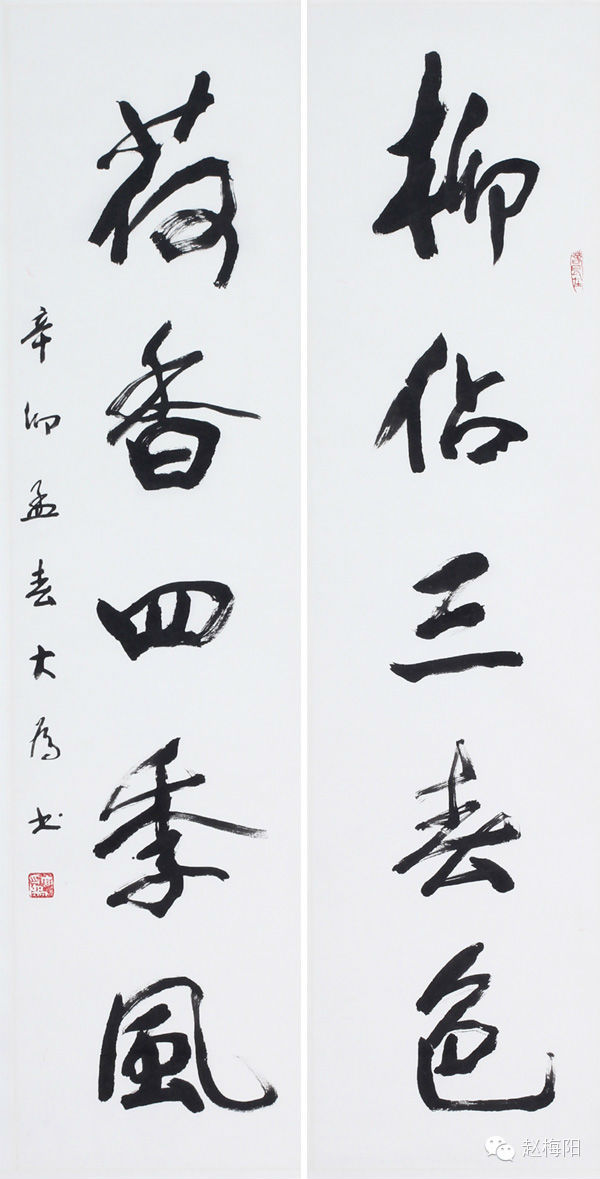 柳佔三春色
荷香四季風
辛卯孟春大為书
赵梅阳